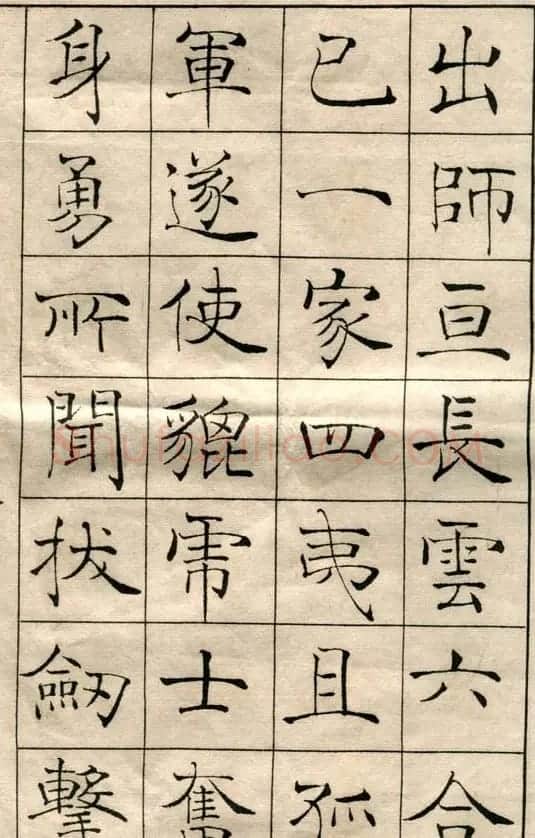 出師亘長雲六合
已一家四夷且孤
軍遂使貔乕士奮
身勇所聞拔劒擊